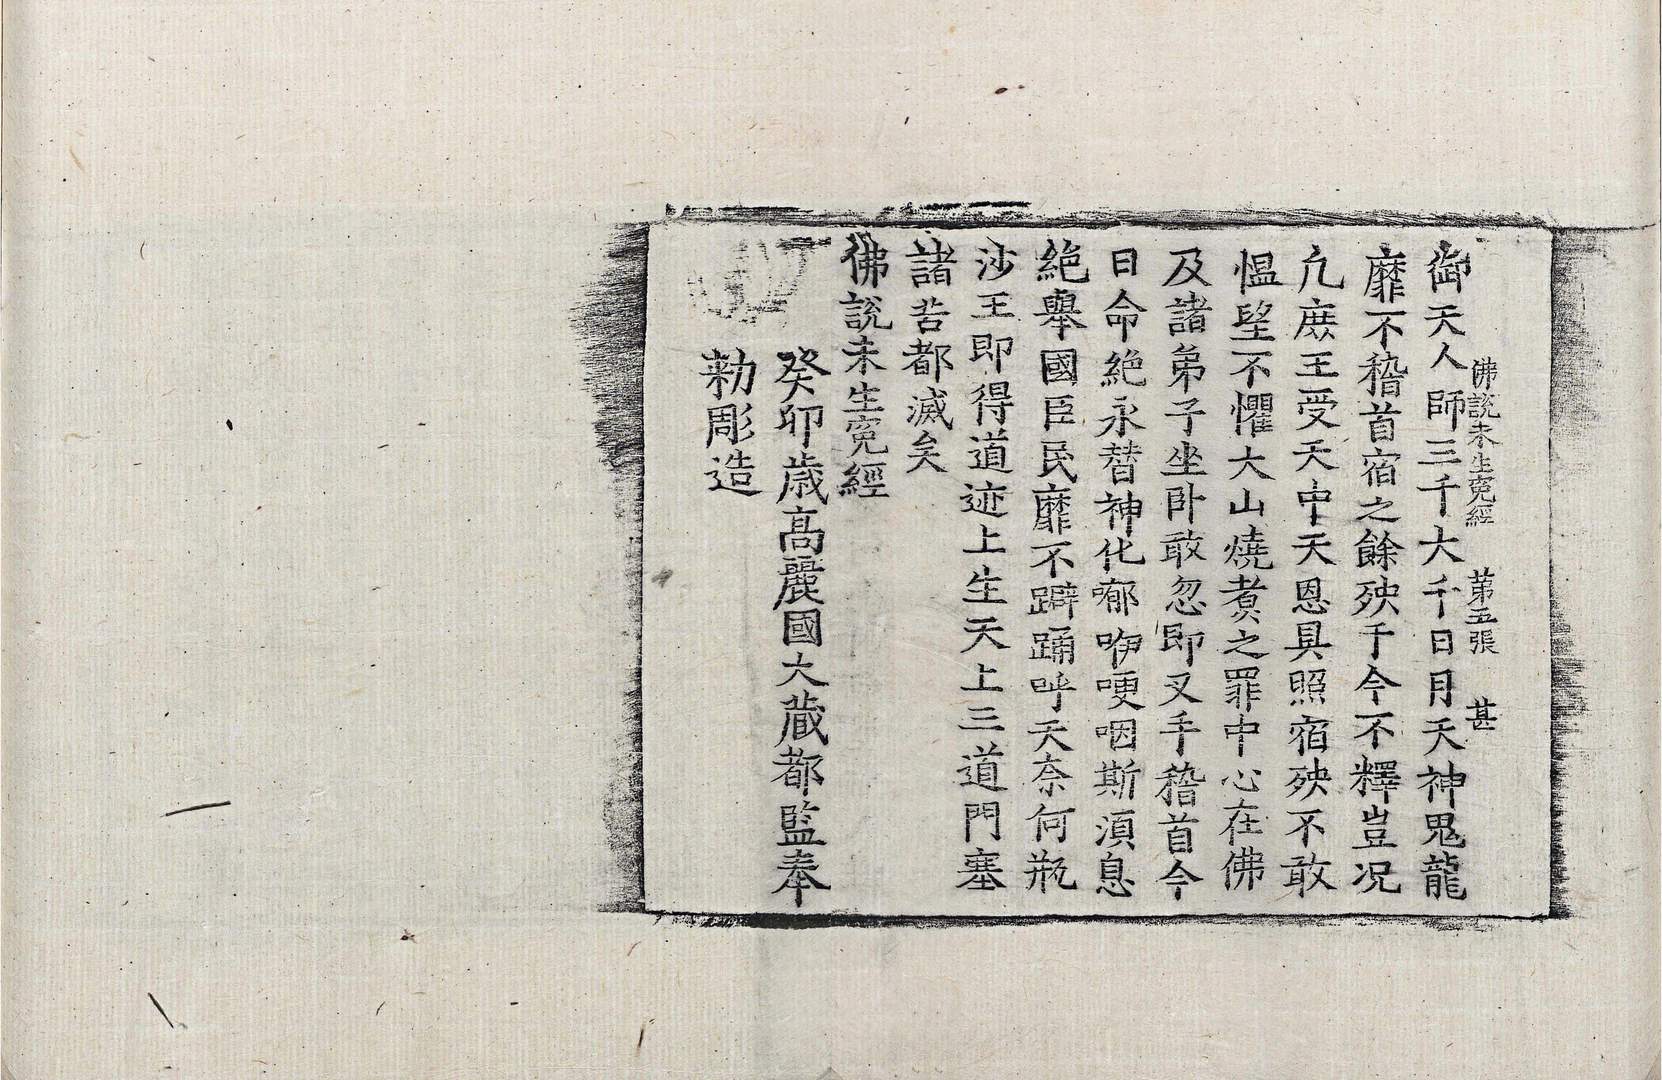 佛說未生冤經 第五張 甚
御天人師三千大千日月天神鬼龍
靡不稽首宿之餘殃于今不釋豈况
凢庶王受天中天恩具照宿殃不敢
愠望不懼大山燒煑之罪中心在佛
及諸弟子坐卧敢忽即叉手稽首今
日命絶永替神化𡄸咿哽咽斯湏息
絶舉國臣民靡不躃踊呼天奈何甁
沙王即得道迹上生天上三道門塞
諸苦都滅矣
佛說未生冤經
癸卯歲高麗國大藏都監奉
勑彫造